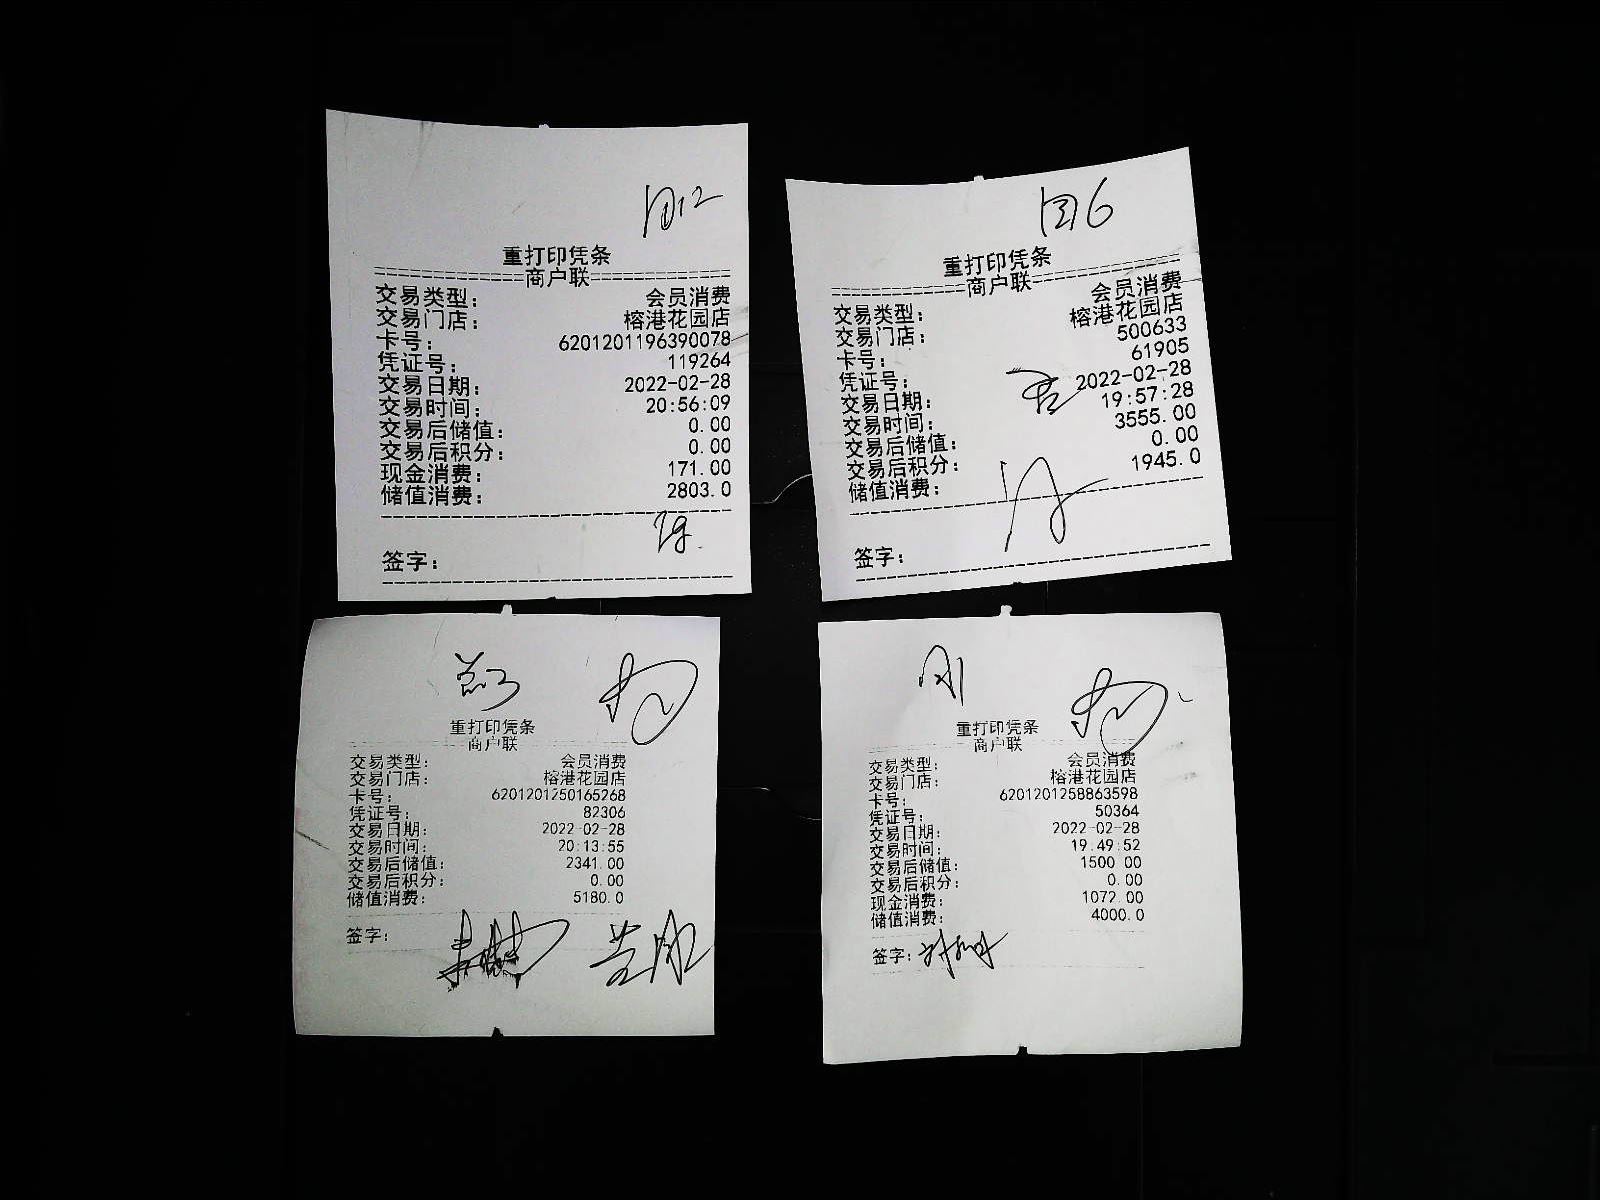 重打印凭条
================商户联================
交易类型: 会员消费
交易门店: 榕港花园店
卡号: 6201201196390078
凭证号: 119264
交易日期: 2022-02-28
交易时间: 20:56:09
交易后储值: 0.00
交易后积分: 0.00
现金消费: 171.00
储值消费: 2803.0
签字:
6
重打印凭条
================商户联================
交易类型: 会员消费
交易门店: 榕港花园店
卡号: 500633
凭证号: 61905
交易日期: 2022-02-28
交易时间: 19:57:28
交易后储值: 3555.00
交易后积分: 0.00
储值消费: 1945.0
签字:
重打印凭条
商户联
交易类型: 会员消费
交易门店: 榕港花园店
卡号: 6201201250165268
凭证号: 82306
交易日期: 2022-02-28
交易时间: 20:13:55
交易后储值: 2341.00
交易后积分: 0.00
储值消费: 5180.0
签字:
重打印凭条
商户联
交易类型: 会员消费
交易门店: 榕港花园店
卡号: 6201201258863598
凭证号: 50364
交易日期: 2022-02-28
交易时间: 19:49:52
交易后储值: 1500.00
交易后积分: 0.00
现金消费: 1072.00
储值消费: 4000.0
签字: